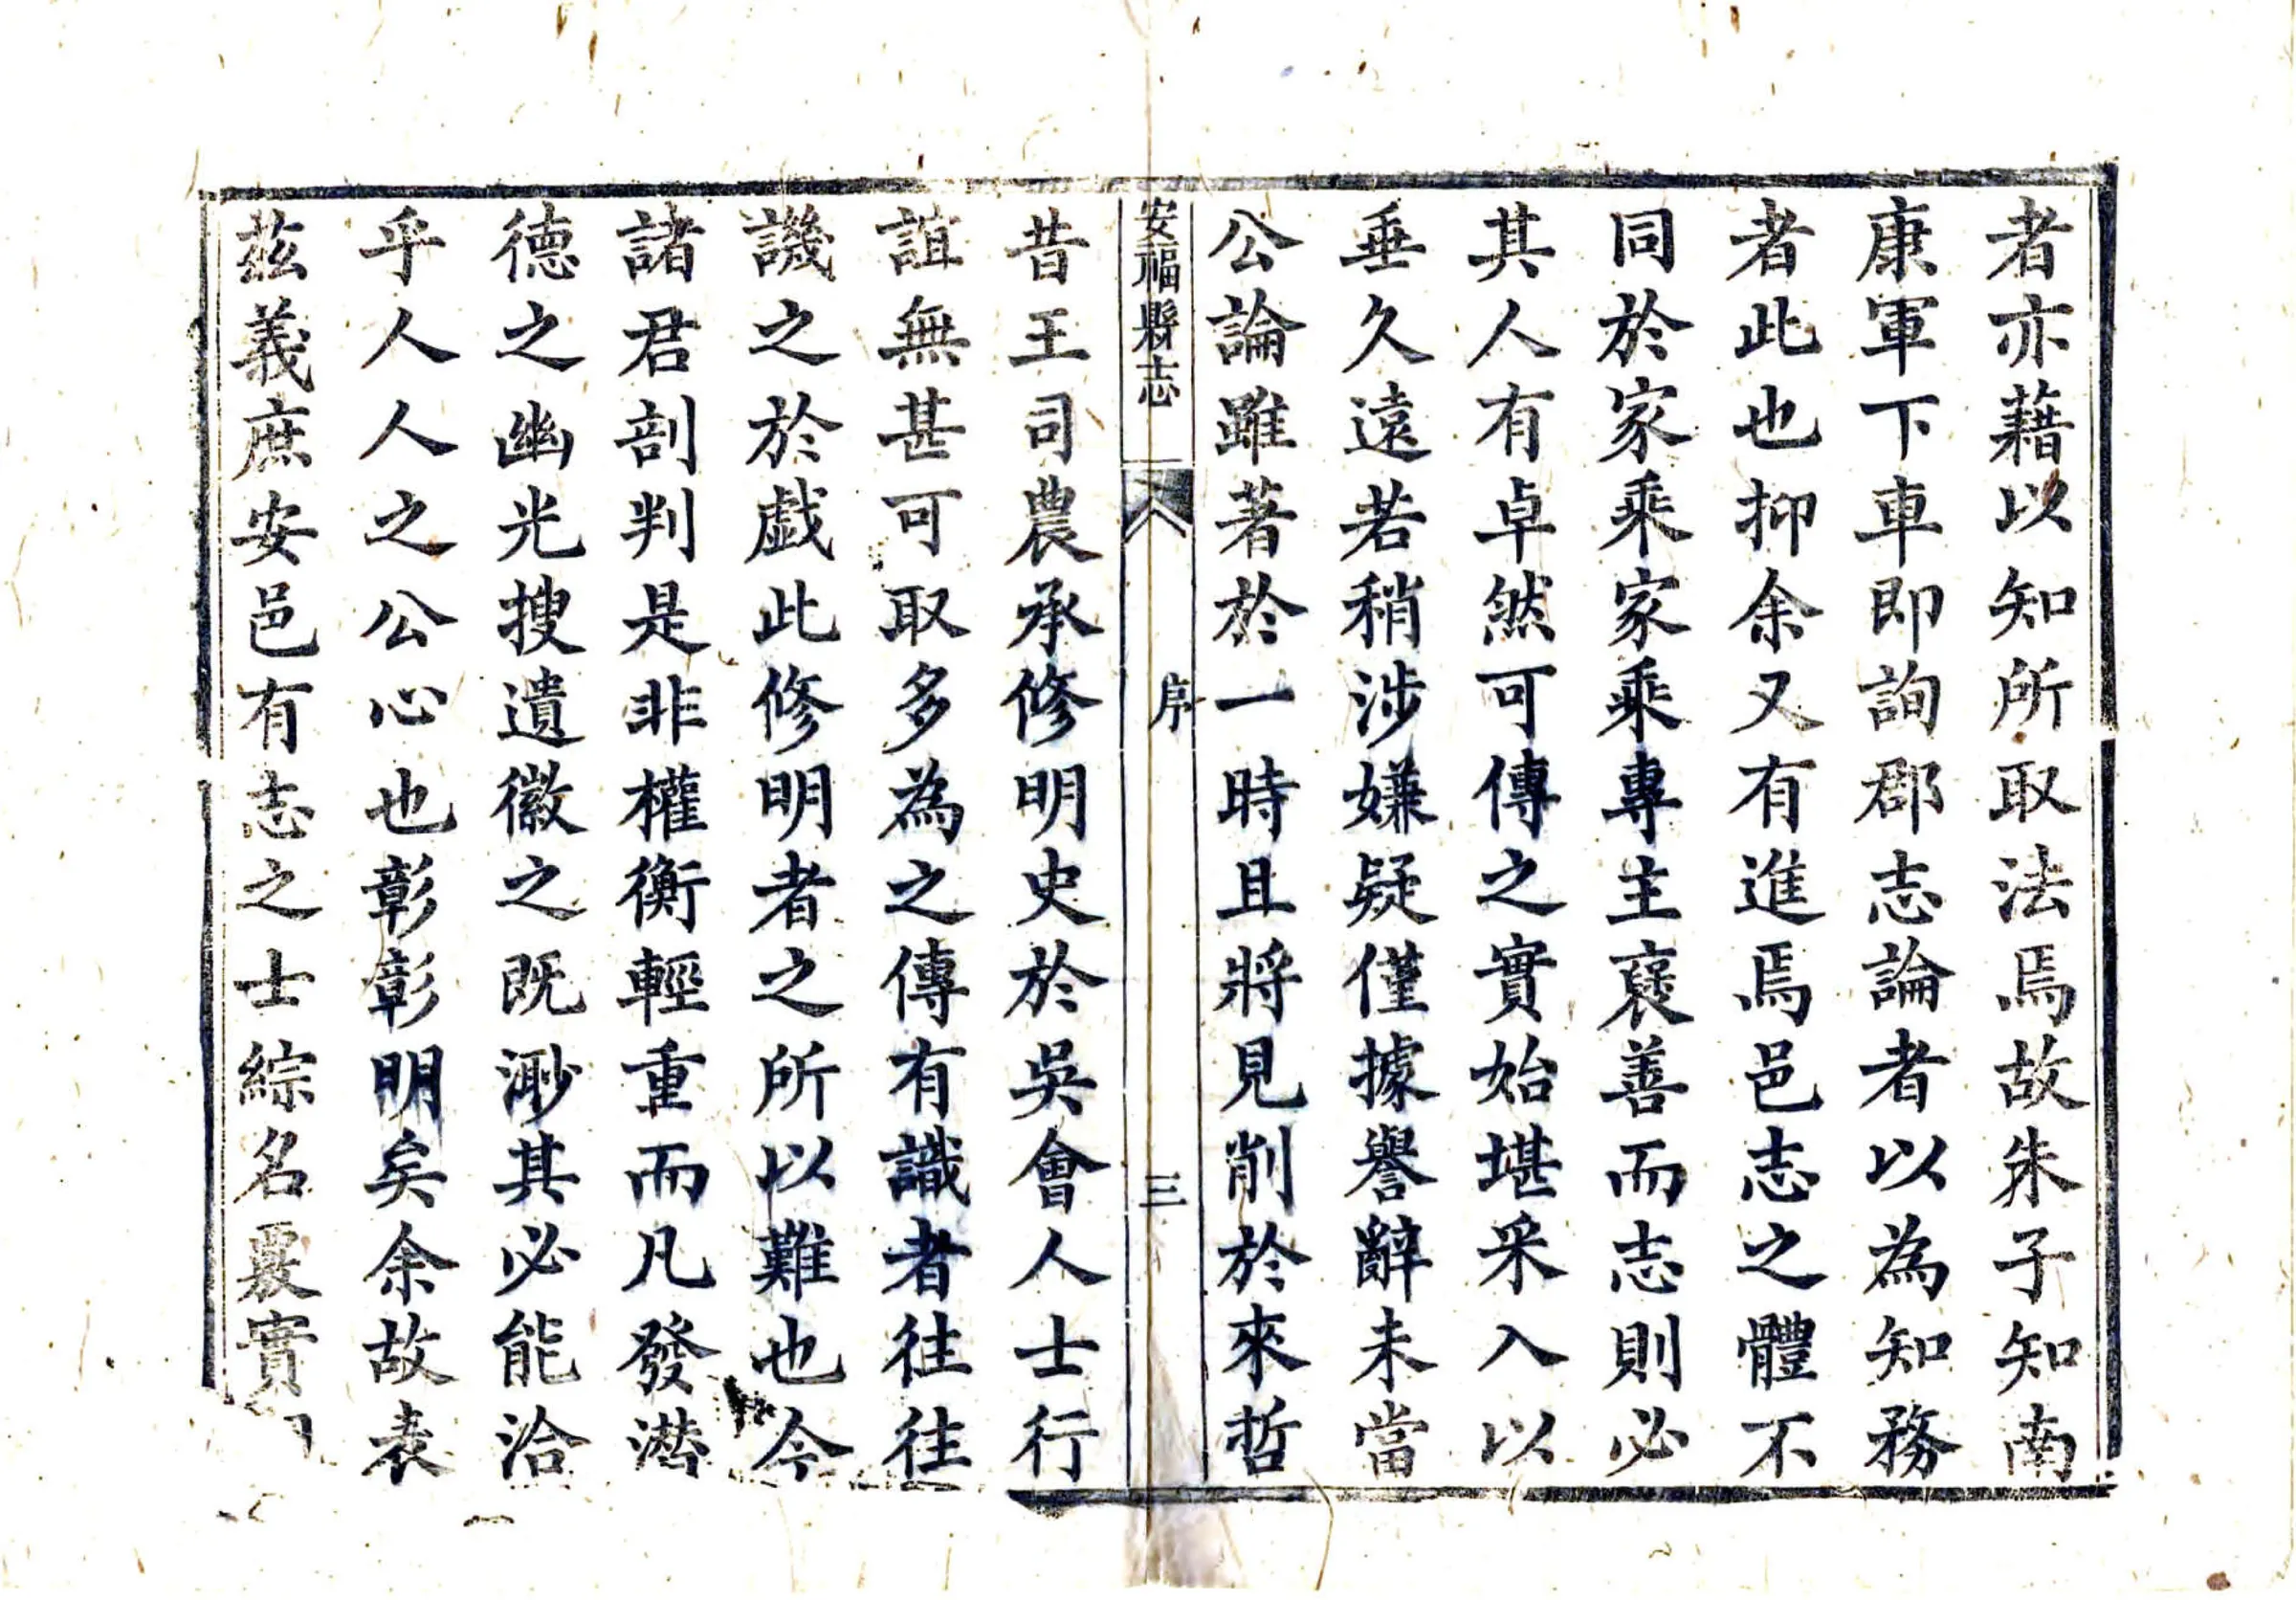 者亦藉以知所取法焉故朱子知南
康軍下車即詢郡志論者以為知務
者此也抑余又有進焉邑志之體不
同於家乘家乘專主襃善而志則必
其人有卓然可傳之實始堪采入以
垂久遠若稍涉嫌疑僅據譽辭未當
公論雖著於一時且將見削於來哲
安福縣志
序
三
昔王司農承修明史於吳會人士行
誼無甚可取多為之傳有識者往往
譏之於戲此修明者之所以難也今
諸君剖判是非權衡輕重而凡發潜
德之幽光搜遺徽之既渺其必能洽
乎人人之公心也彰彰明矣余故表
茲義庶安邑有志之士綜名覈實